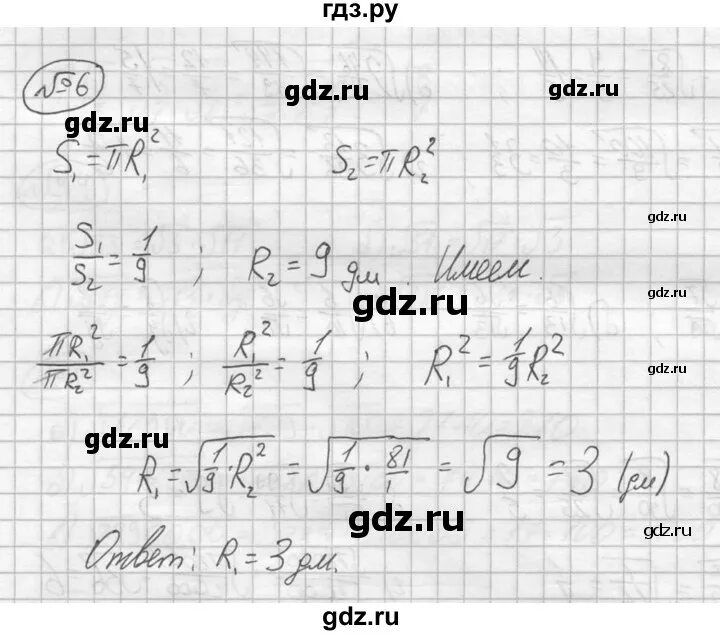 гдз.ру
№6
gdz.ru gdz.ru gdz.ru
S₁ = πR₁² S₂ = πR₂²
gdz.ru
S₁/S₂ = 1/9 ; R₂ = 9 дм. Имеем.
gdz.ru gdz.ru
πR₁²/πR₂² = 1/9 ; R₁²/R₂² = 1/9 ; R₁² = 1/9 R₂²
gdz.ru
gdz.ru gdz.ru
R₁ = √(1/9 · R₂²) = √(1/9 · 81/1) = √9 = 3 (дм)
gdz.ru gdz.ru
Ответ: R₁ = 3 дм.
gdz.ru